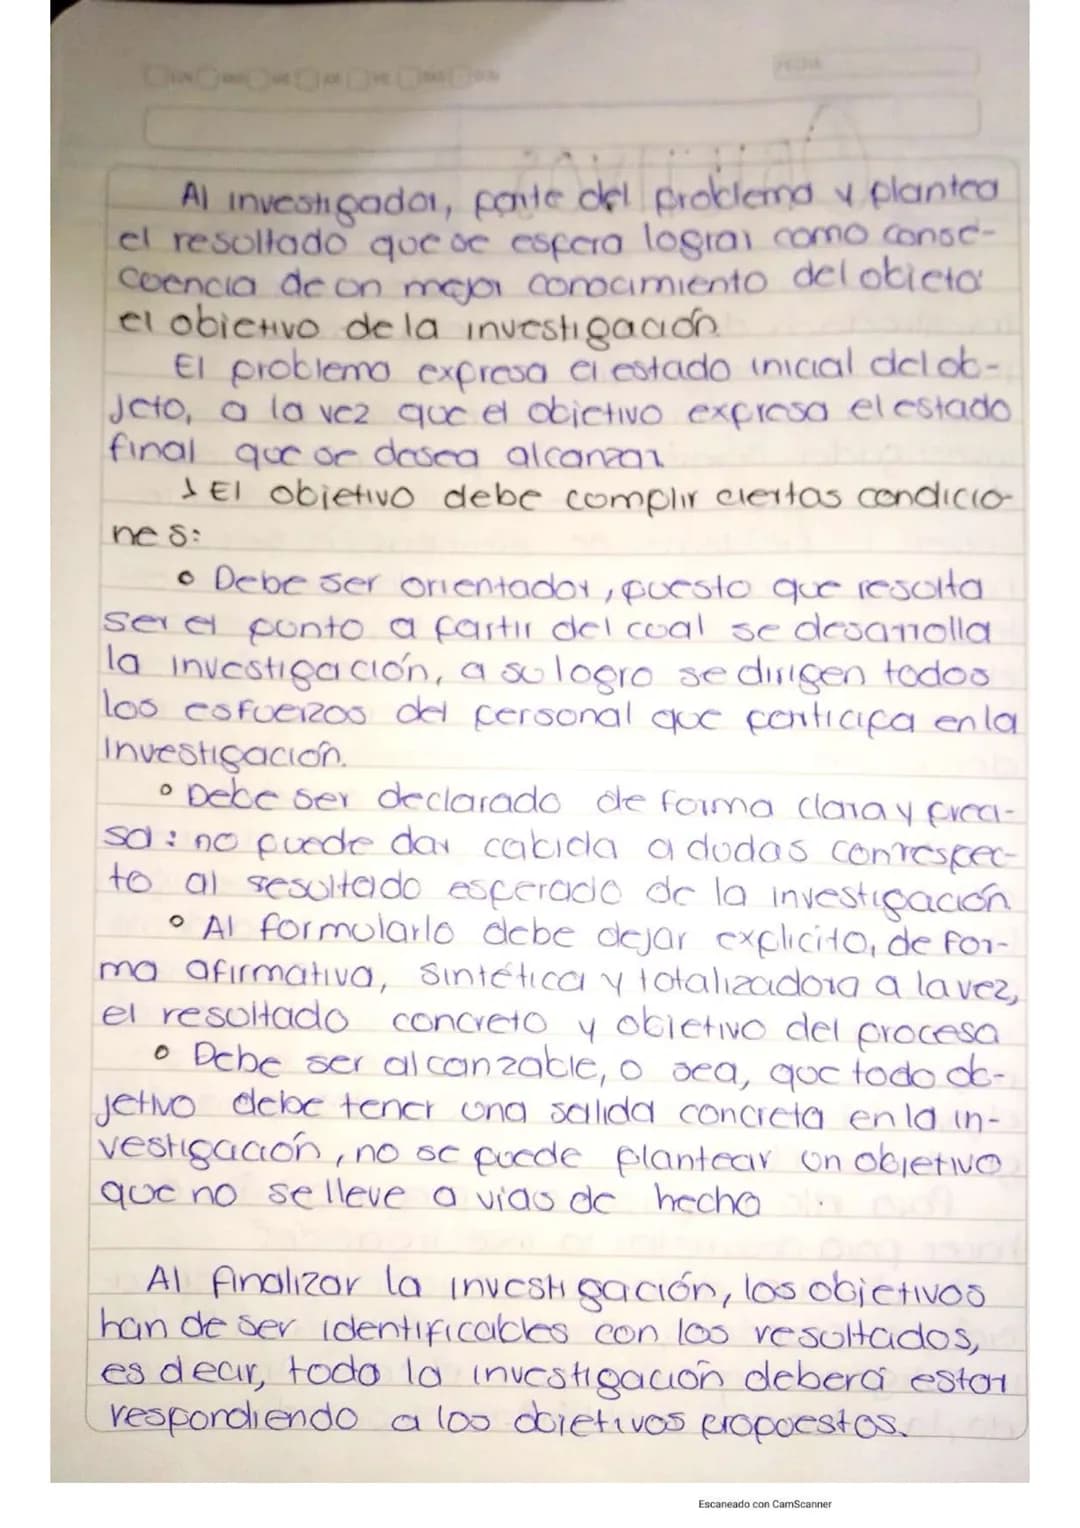 Al investigador, parte del problema y plantea
el resultado que se espera lograr como conse-
cuencia de un mejor conocimiento del objeto:
el objetivo de la investigación
El problema expresa el estado inicial del ob-
jeto, a la vez que el objetivo expresa el estado
final que se desea alcanzar
El objetivo debe complir ciertas condicio-
nes:
• Debe ser orientador, puesto que resulta
ser el punto a partir del cual se desarrolla
la investigación, a su logro se dirigen todos
los esfuerzos del personal que participa en la
investigación.
• Debe ser declarado de forma clara y preci-
sa: no puede dar cabida a dudas con respec-
to al resultado esperado de la investigación
• Al formularlo debe dejar explicito, de for-
ma afirmativa, sintética y totalizadora a la vez,
el resultado concreto y objetivo del procesa
• Debe ser alcanzable, o sea, que todo ob-
jetivo debe tener una salida concreta en la in-
vestigación, no se puede plantear un objetivo
que no se lleve a vias de hecho
Al finalizar la investigación, los objetivos
han de ser identificables con los resultados,
es decir, toda la investigación deberá estar
respondiendo a los objetivos propuestos.
Escaneado con CamScanner